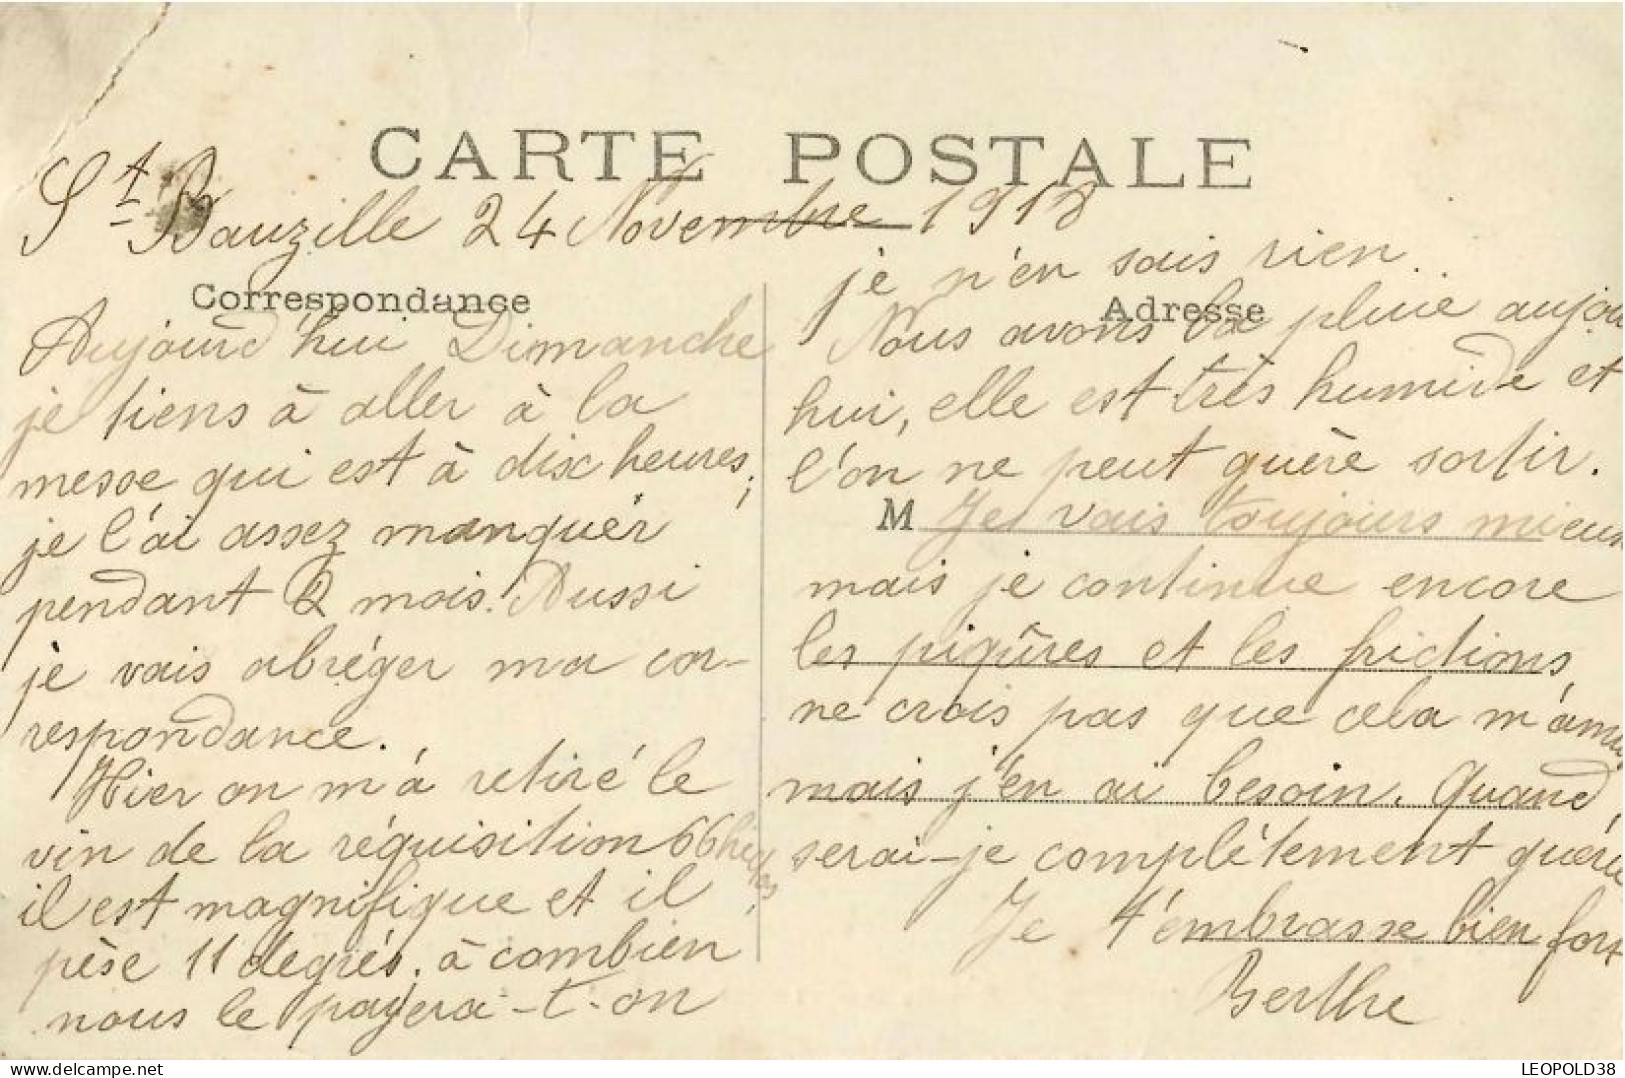 CARTE POSTALE
St Bauzille 24 Novembre 1918
Correspondance
Aujourd'hui Dimanche
je tiens à aller à la
messe qui est à dix heures;
je l'ai assez manquér
pendant 2 mois. Aussi
je vais abréger ma cor-
respondance.
Hier on m'a retiré le
vin de la réquisition 66
il est magnifique et il
pèse 11 degrés. à combien
nous le payera-t-on
je n'en sais rien..
Adresse
Nous avons la pluie aujou
hui, elle est très humide et
l'on ne peut guère sortir.
M
Je vais toujours mieux
mais je continue encore
les piqûres et les frictions,
ne crois pas que cela m'amu
mais j'en ai besoin. Quand
serai-je complètement guérie
Je t'embrasse bien fort
Berthe
LEOPOLD38